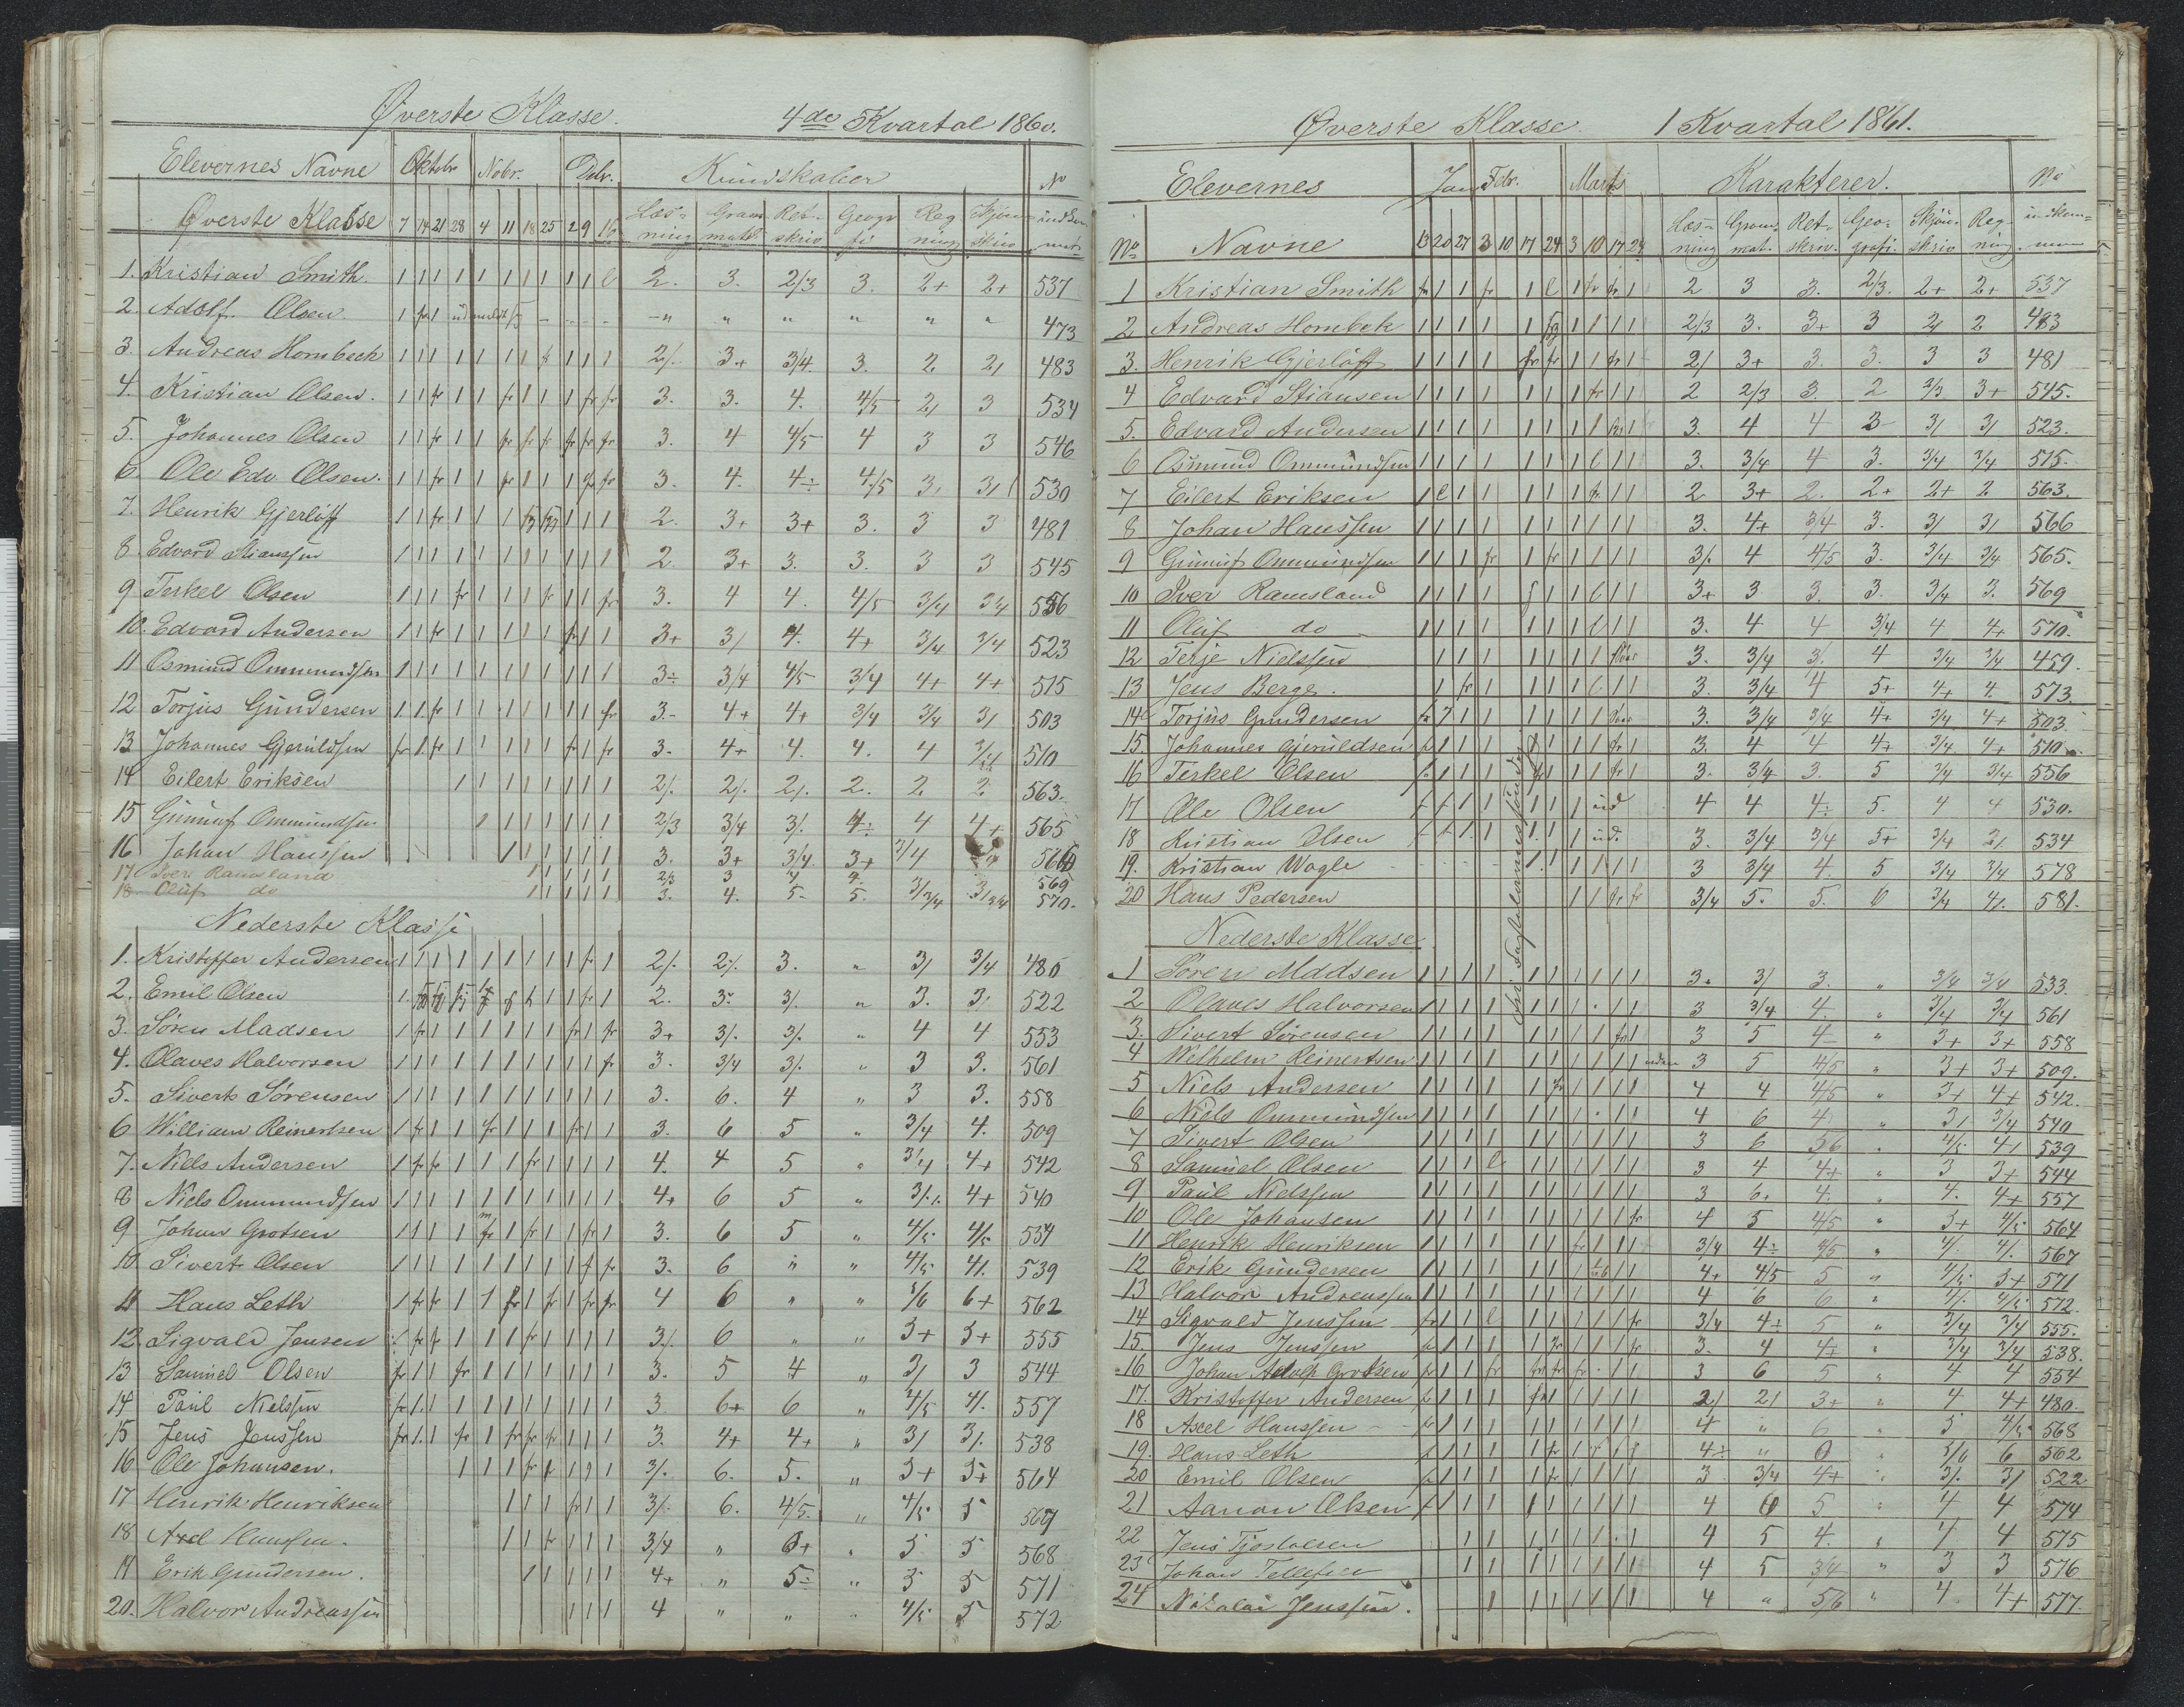 Øverste Klasse. 4de Kvartal 1860.
Elevernes Navne Oktobr Nobr. Debr. Kundskaber No
Øverste Klasse 7 14 21 28 4 11 18 25 2 9 16 Læsning Gram matk. Retskriv Geogr fi Regning Skjönskriv indkom
1. Kristian Smith. 1 1 1 1 1 1 1 1 1 1 l 2. 3. 2/3 3. 2+ 2+ 537
2. Adolf Olsen. 1 fr 1 473
3. Andreas Hornbech 1 1 1 1 1 1 1 fr 1 1 1 2/. 3+ 3/4. 3. 2. 2/ 483
4. Kristian Olsen. 1 1 fr 1 1 fr 1 1 1 fr fr 3. 3. 4. 4/5 2/ 3 534
5. Johannes Olsen 1 1 fr 1 1 fr fr fr fr fr fr 3. 4 4/5 4 3 3 546
6. Ole Edv. Olsen. 1 1 fr 1 1 fr 1 1 1 fr fr 3. 4. 4÷ 4/5 3, 3/ 530
7. Henrik Gjerløff 1 1 fr 1 1 1 1 1 1 2. 3+ 3+ 3. 3 3 481
8. Edvard Stianssen 1 1 1 1 1 1 1 1 1 1 1 2. 3+ 3. 3. 3 3 545
9 Terkel Olsen 1 1 1 fr 1 1 1 fr 1 1 fr 3. 4 4. 4/5 3/4 3/4 556
10. Edvard Andersen 1 1 fr 1 1 1 1 1 fr 1 1 3+ 3/ 4. 4+ 3/4 3/4 523
11 Osmund Ommundsen 1 1 1 1 1 1 1 1 1 1 1 3÷ 3/4 4/5 3/4 4+ 4+ 515
12 Torjus Gundersen 1 1 fr 1 1 1 1 1 1 1 fr 3.- 4+ 4+ 3/4 3/4 3/ 503
13 Johannes Gjeruldsen fr 1 fr 1 1 1 1 1 fr 1 fr 3. 4+ 4. 4. 4 3/4 510
14 Eilert Eriksen 1 1 1 1 1 1 1 1 2/. 2/. 2/. 2. 2. 2. 563.
15 Gunuf Ommundsen 1 1 1 1 1 1 1 2/3 3/4 3/. 4÷ 4 4+ 565
16 Johan Hanssen 1 1 1 1 1 1 3. 3+ 3/4. 3+ 3/4 566
17 Iver Ramsland 1 1 1 1 1 2/3 3 4 4. 569
18 Oluf do 1 1 1 1 1 3. 4. 5- 5. 3/3/4 3/3/4 570.
Nederste Klasse
1. Kristoffer Andersen 1 1 1 1 1 1 1 1 1 fr 1 2/. 2/. 3. " 3/ 3/4 480
2. Emil Olsen 2. 3. 3/. " 3. 3/ 522
3. Sören Madsen 1 fr 1 1 1 1 1 1 fr 1 fr 3+ 3/. 3/. " 4 4 553
4. Olaves Halvorsen 1 1 1 1 1 1 1 1 1 1 fr 3. 3/4 3/. " 3 3. 561
5. Siverts Sörensen 1 1 1 1 1 1 1 1 1 1 1 3. 6. 4 " 3 3. 558
6 William Reinertsen 1 fr 1 1 fr 1 1 1 fr 1 1 3. 6 5 " 3/4 4. 509
7. Niels Andersen 1 fr fr 1 1 1 fr 1 1 1 1 4. 4 5 " 3/4 4+ 542
8 Niels Ommundsen 1 1 1 1 1 1 1 1 1 1 1 4+ 6 5 " 3/. 4+ 540
9 Johan Grotsen 1 1 1 1 fr 1 fr 1 1 fr 1 3. 6 5 " 4/5 4/5 554
10 Sivert Olsen 1 1 1 1 1 1 1 1 1 fr fr 3. 6 " " 4/5 4/. 539
11 Hans Leth 1 fr fr 1 1 fr 1 fr 1 fr fr 4 6 " " 5/6 6+ 562
12 Sigvald Jensen 1 fr fr 1 1 1 fr 1 1 1 1 3/. 6 " " 3+ 3+ 555
13 Samuel Olsen fr 1 1 fr 1 1 1 1 1 1 1 3. 5 4 " 3/ 3 544
14 Paul Nielssen fr 1 1 1 1 1 1 1 1 1 1 3 6+ 6 " 4/5 4/. 557
15 Jens Jenssen fr 1 1 fr 1 fr fr fr 1 1 1 3. 4+ 4+ " 3/ 3/. 538
16 Ole Johansen. 1 1 1 fr fr 1 1 1 3/. 6. 5. " 3+ 3+ 564
17 Henrik Henriksen 1 1 1 fr 1 1 3/. 6. 4/5. " 4/5 5 567
18 Axel Hanssen. 1 1 fr 1 1 1 3/4 " 6+ " 5 5 568
19 Erik Gundersen. 1 1 1 1 1 4+ " 5÷ " 5 5 571
20. Halvor Andreassen 1 1 1 4 " " " 4/5 5 572
Øverste Klasse. 1 Kvartal 1861.
Elevernes Jan Febr. Marts Karakterer. No
No Navne 13 20 27 3 10 17 24 3 10 17 24 Læsning Gram mat. Retskriv. Geografi. Skjönskriv Regning. indkom
1 Kristian Smith fr 1 1 fr 1 l 1 fr fr 1 2 3 3. 2/3. 2+ 2+ 537
2 Andreas Hornbek 1 1 1 1 1 1 1 1 1 2/3 3. 3+ 3 2/ 2 483
3. Henrik Gjerløff 1 1 1 1 fr fr 1 1 fr 1 2/ 3+ 3. 3. 3 3 481
4 Edvard Stiansen 1 1 1 1 1 1 1 fr 1 1 2 2/3 3. 2 2/3 3+ 545.
5. Edvard Andersen 1 1 1 1 1 1 1 1 1 3. 4 4 3 3/ 3/ 523.
6 Osmund Ommundsen 1 1 1 1 1 1 1 l 1 1 3. 3/4 4 3. 3/4 3/4 515.
7 Eilert Eriksen 1 l 1 1 1 1 1 fr 1 1 2 3+ 2. 2+ 2+ 2 563.
8 Johan Hanssen 1 1 1 1 1 1 1 1 1 1 3. 4+ 3/4 3. 3/ 3/ 566
9 Gunuf Ommundsen 1 1 1 fr 1 fr 1 1 1 1 3/. 4 4/5 3. 3/4 3/4 565.
10 Iver Ramsland 1 1 1 1 1 1 l 1 1 3+ 3 3. 3. 3/4 3. 569
11 Oluf do 1 1 1 1 1 1 1 l 1 1 3. 4 4 3/4 4 4+ 570.
12 Terje Nielssen 1 1 1 1 1 1 1 3. 3/4 3/. 4 3/4 3/4 459.
13 Jens Berge. 1 fr 1 1 1 1 l 1 1 3. 3/4 4 5+ 4+ 4. 573
14 Torjus Gundersen fr 1 1 1 1 1 1 1 3. 3/4 3/4 4+ 3/4 4+ 503
15. Johannes Gjeruldsen fr 1 1 1 1 1 1 fr 1 3. 4 4 4+ 3/4 4+ 510
16 Terkel Olsen fr 1 1 1 fr 1 1 1 fr 1 3. 3/4 3. 5 3/4 3/4 556
17 Ole Olsen 1 1 1 1 1 ud 4 4 4÷ 5. 4 4 530.
18 Kristian Olsen 1 1 1 1 1 ud. 3. 3/4 3/4 5+ 3/4 2/ 534
19. Kristian Wogle 1 1 1 1 1 1 3 3/4 4. 5 3/4 3/4 578
20 Hans Pedersen 1 1 fr fr 3/4 5. 5. 6 3/4 4. 581.
Nederste Klasse
1 Sören Madsen 1 1 1 1 1 1 1 1 1 1 3. 3/ 3. " 3/4 3/4 533.
2 Olaves Halvorsen 1 1 1 1 1 1 1 1 1 3 3/4 4. " 3/4 3/4 561
3. Sivert Sörensen 1 1 1 1 1 1 1 1 fr 1 3 5 4 3+ 3+ 558
4 Wilhelm Reinertsen 1 1 1 1 1 1 1 1 1 1 3 5 4/5 " 3+ 3+ 509.
5 Niels Andersen 1 1 1 1 1 fr 1 1 1 1 4 4 4/5 " 3+ 4+ 542.
6 Niels Ommundsen 1 1 1 1 1 1 1 1 1 4 6 4. " 3/ 3/4 540
7 Sivert Olsen 1 1 1 1 1 1 1 1 1 1 3 6 5/6 " 4/5 4/ 539
8 Samuel Olsen 1 1 1 l 1 1 1 1 1 1 3 4 4+ " 3 3+ 544
9 Paul Nielssen 1 1 1 1 1 1 1 1 1 1 3 6. 4. " 4. 4+ 557
10 Ole Johansen 1 1 1 1 1 1 1 1 1 fr 4 5 4/5 " 3+ 4/5 564
11 Henrik Henriksen 1 1 1 1 1 1 fr 1 1 1 3/4 4÷ 4/5 " 4/ 4/. 567
12 Erik Gundersen 1 1 1 1 1 1 1 1 1 4+ 4/5 5 " 4/5 3+ 571
13 Halvor Andreassen 1 1 1 1 1 1 1 1 1 1 4 6 6 " 4/. 4/5 572
14 Sigvald Jenssen fr 1 1 l 1 1 1 1 1 fr 3/4 4+ 5 " 3/4 3/4 555.
15. Jens Jenssen fr 1 1 1 1 fr 1 1 1 fr 3. 4 4+ " 3/4 3/4 538.
16 Johan Adolph Grotsen fr 1 1 fr fr fr fr 1 1 3 6 5 " 4 4 554
17. Kristoffer Andersen fr 1 1 1 fr 1 1 1 1 1 2/ 2/ 3+ " 4 4+ 480.
18 Axel Hanssen fr 1 1 1 1 1 1 1 1 1 4 " 6 " 5 4/5 568
19. Hans Leth 4÷ " 6 5/6 6 562
20 Emil Olsen fr 1 1 1 1 fr 1 1 1 1 3 3/4 4+ " 3/. 3/ 522
21 Aanon Olsen fr 1 1 1 1 1 1 1 1 1 4 6 5 " 4 4 574
22 Jens Tjostolsen 1 1 1 1 1 1 1 4 5 4. " 4 4 575
23 Johan Tellefsen 1 1 1 1 1 1 1 1 4 5 3/4 " 3 3 576
24 Nikolai Jenssen. 1 1 1 1 1 1 1 4 " 5/6 " 4. 4+ 577.